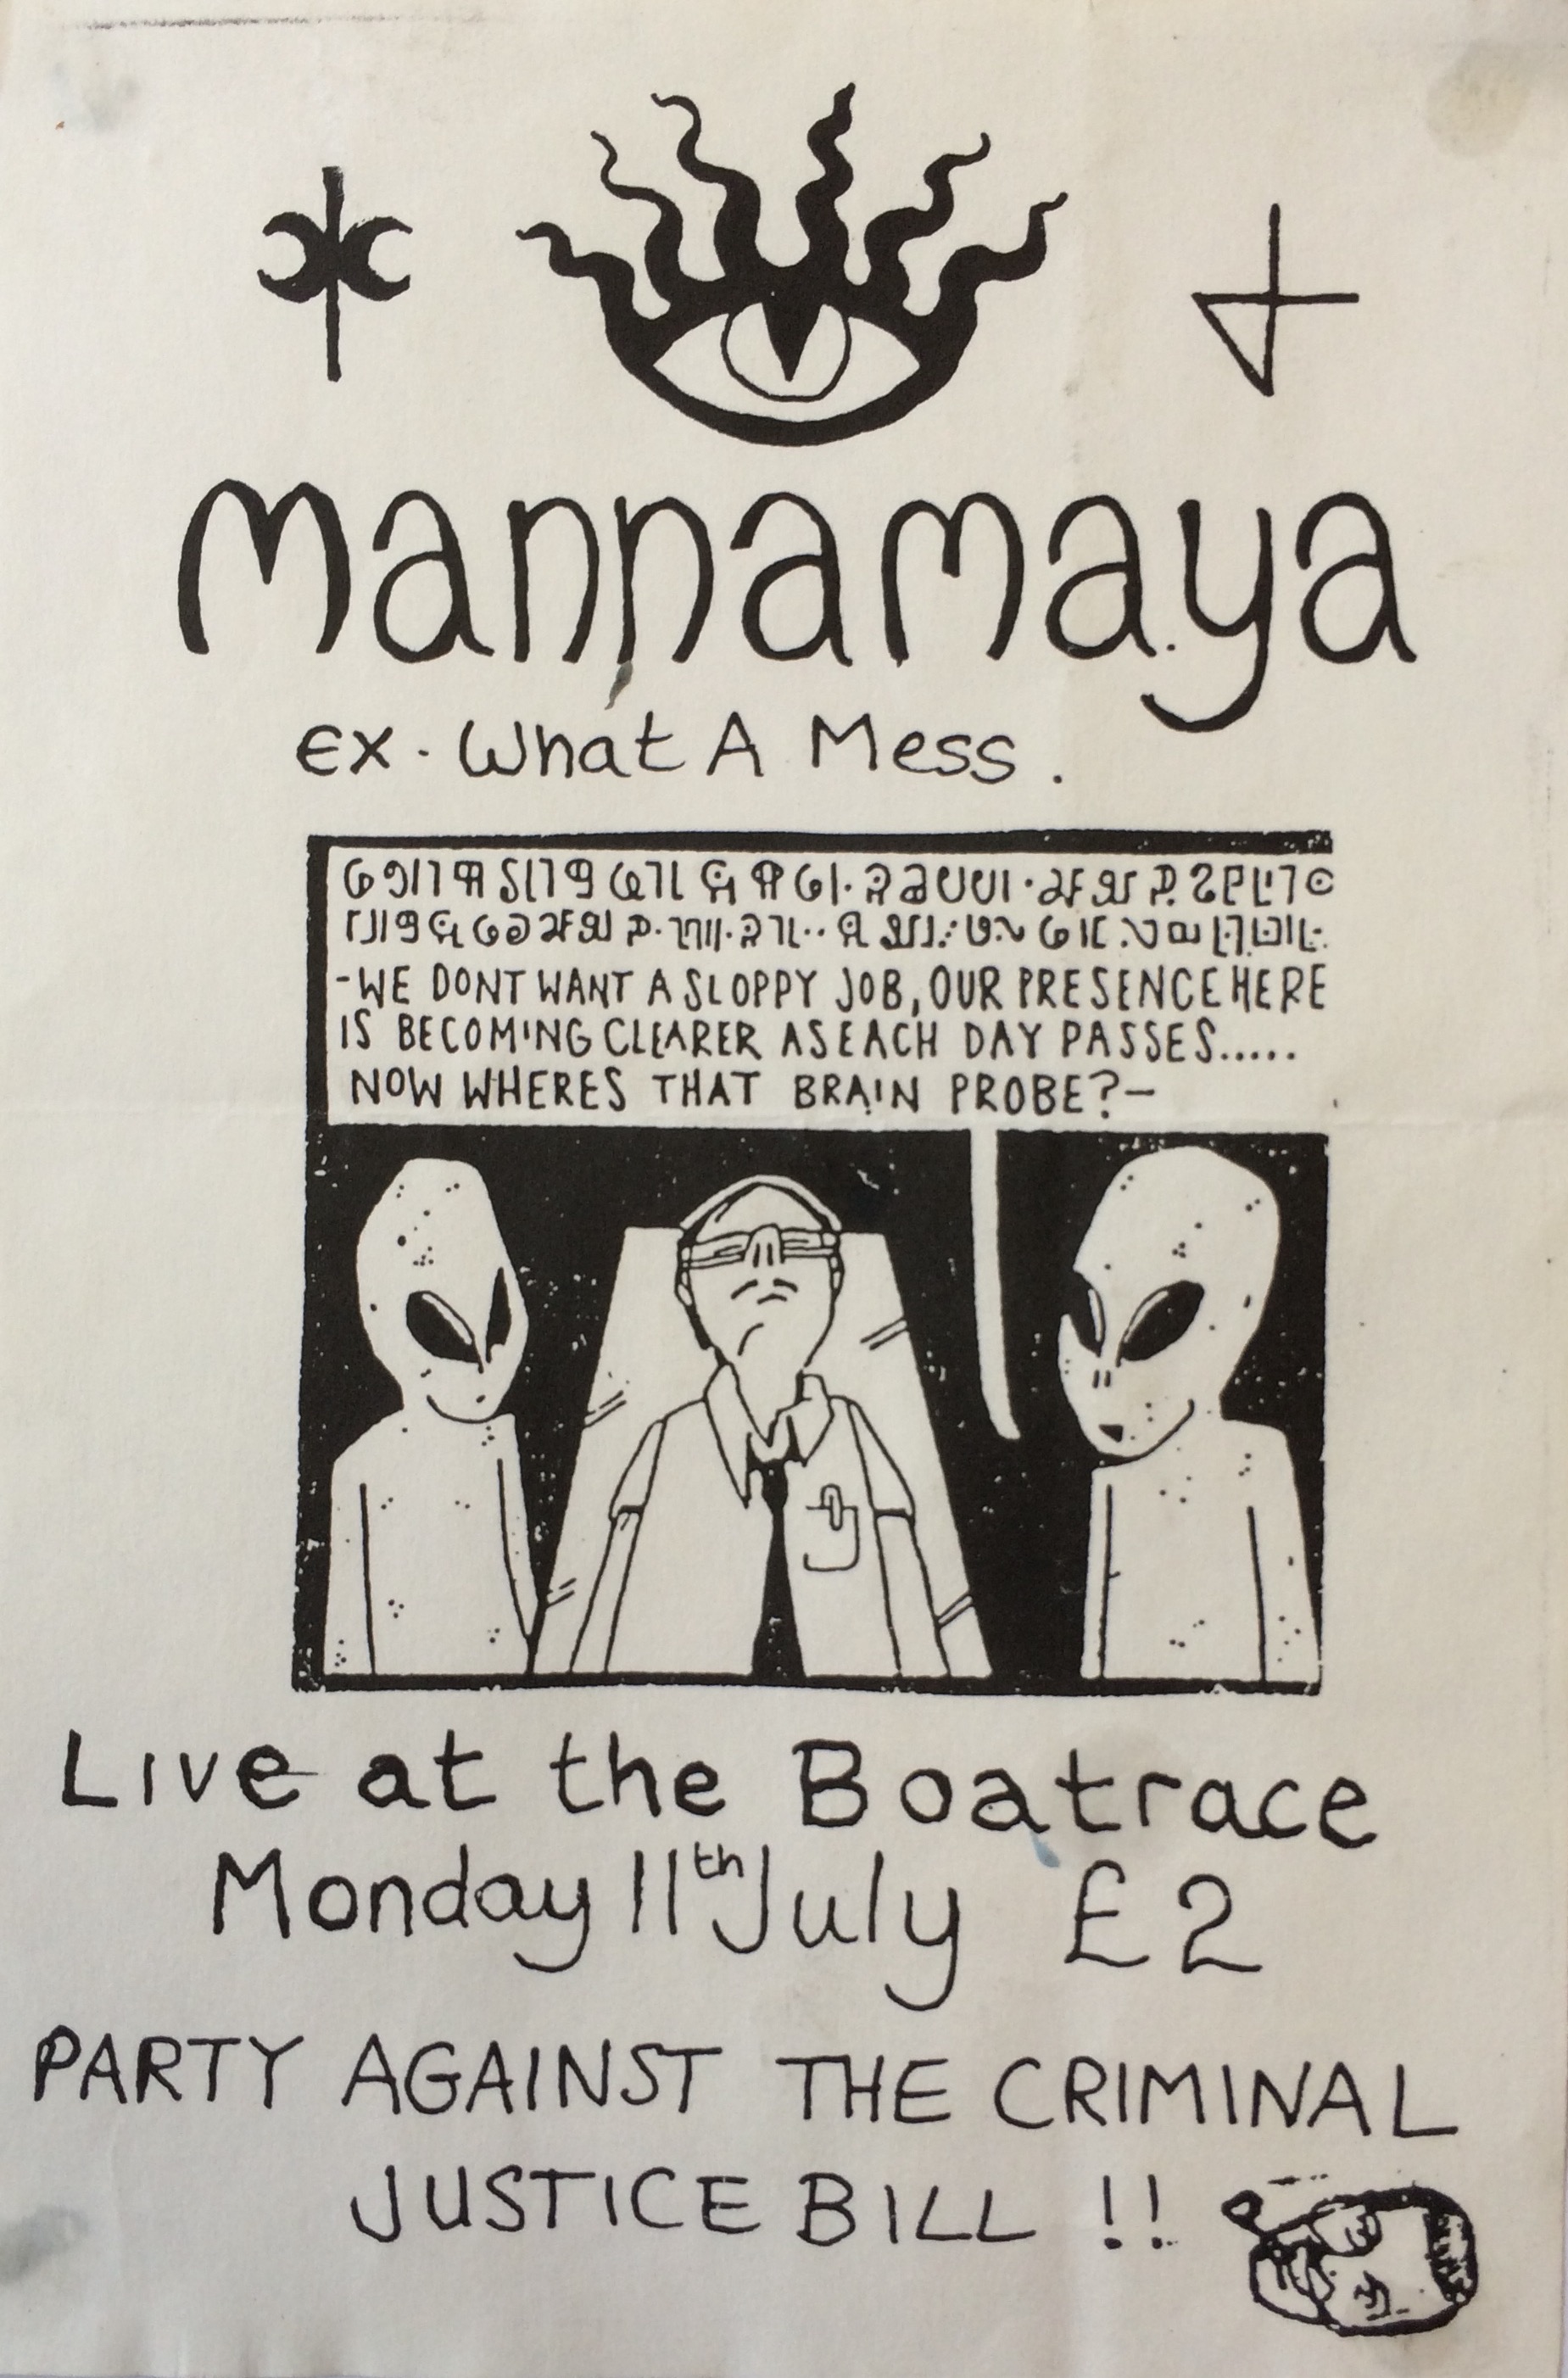 Mannamaya
Ex. What A Mess.
-WE DONT WANT A SLOPPY JOB, OUR PRESENCE HERE
IS BECOMING CLEARER AS EACH DAY PASSES.....
NOW WHERES THAT BRAIN PROBE?-
Live at the Boatrace
Monday 11th July £2
PARTY AGAINST THE CRIMINAL
JUSTICE BILL !!